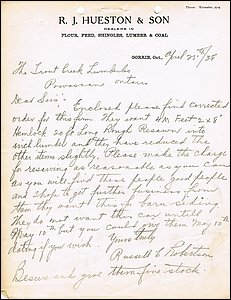 Phone: Worcester, 1504
R. J. HUESTON & SON
DEALERS IN
FLOUR, FEED, SHINGLES, LUMBER & COAL
GORRIE, Ont., April 25th/28
The Trout Creek Lumber Co
Powassan Ontario
Dear Sirs:- Enclosed please find corrected
order for this firm. They want 4 M Feet 2x8"
Hemlock 20 ft Long Rough Resawn into
inch lumber and they have reduced the
other items slightly. Please make the charge
for resawing as reasonable as you can
as you will find these people good people
and I hope to get further business from
them they want this to barn siding
They do not want this car until
May 10th but you could give them May 10th
dating if you wish.
Yours truly
Russell E. Robertson
Be sure and give them fine stock.